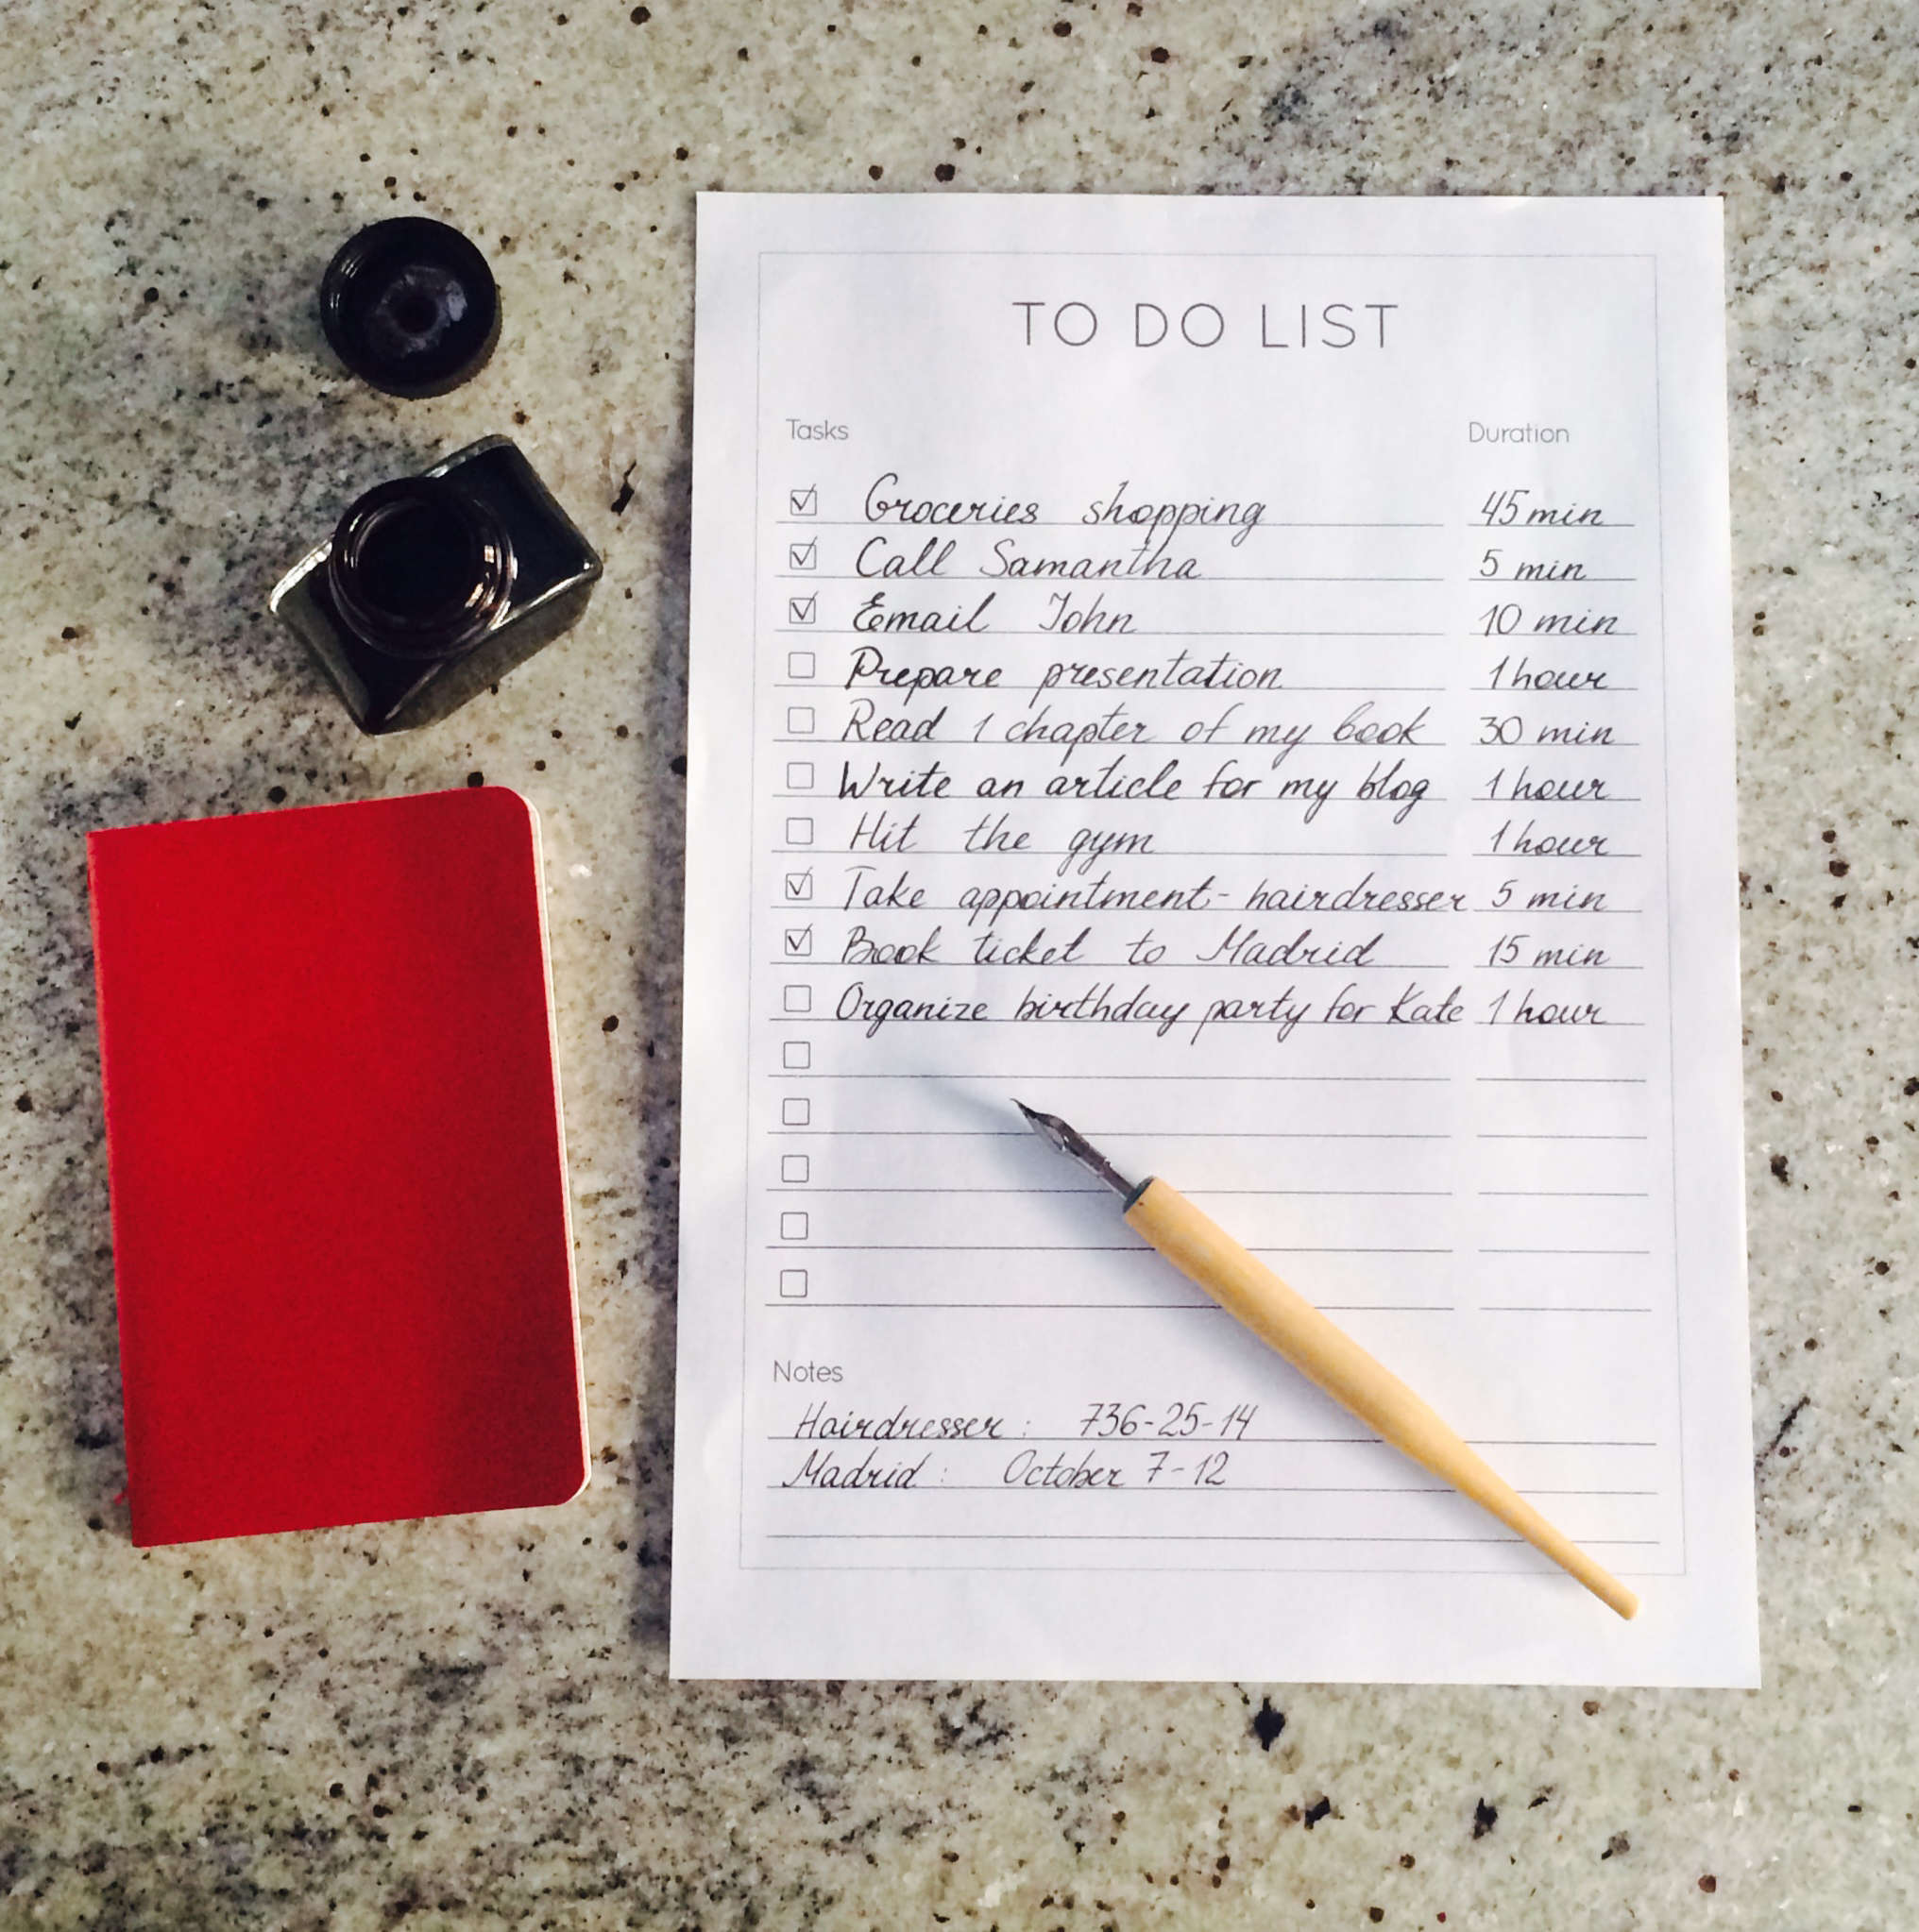 TO DO LIST
Tasks Duration
Groceries shopping 45 min
Call Samantha 5 min
Email John 10 min
Prepare presentation 1 hour
Read 1 chapter of my book 30 min
Write an article for my blog 1 hour
Hit the gym 1 hour
Take appointment - hairdresser 5 min
Book ticket to Madrid 15 min
Organize birthday party for Kate 1 hour
Notes
Hairdresser : 736-25-14
Madrid : October 7-12